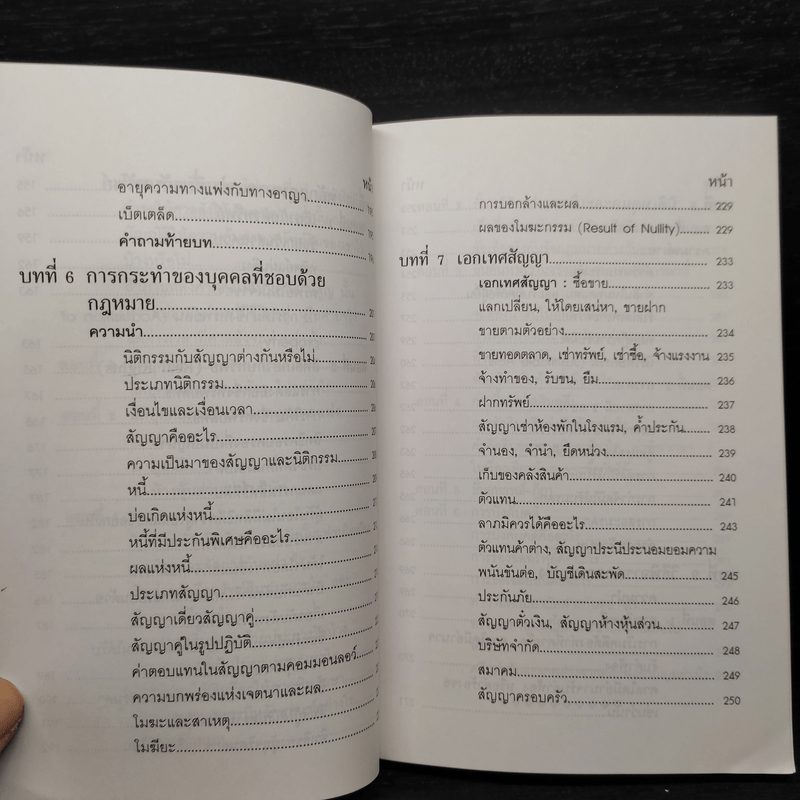 หน้
อายุความทางแพ่งกับทางอาญา
เบ็ตเตล็ด
คำถามท้ายบท
บทที่ 6 การกระทำของบุคคลที่ชอบด้วย
กฎหมาย
ความนำ
นิติกรรมกับสัญญาต่างกันหรือไม่
ประเภทนิติกรรม
เงื่อนไขและเงื่อนเวลา
สัญญาคืออะไร
ความเป็นมาของสัญญาและนิติกรรม
หนี้
บ่อเกิดแห่งหนี้
หนี้ที่มีประกันพิเศษคืออะไร
ผลแห่งหนี้
ประเภทสัญญา
สัญญาเดี่ยวสัญญาคู่
สัญญาคู่ในรูปปฏิบัติ
ค่าตอบแทนในสัญญาตามคอมมอนลอว์
ความบกพร่องแห่งเจตนาและผล
โมฆะและสาเหตุ
โมฆียะ
หน้า
การบอกล้างและผล 229
ผลของโมฆะกรรม (Result of Nullity) 229
บทที่ 7 เอกเทศสัญญา 233
เอกเทศสัญญา : ซื้อขาย 233
แลกเปลี่ยน, ให้โดยเสน่หา, ขายฝาก
ขายตามตัวอย่าง 234
ขายทอดตลาด, เช่าทรัพย์, เช่าซื้อ, จ้างแรงงาน 235
จ้างทำของ, รับขน, ยืม 236
ฝากทรัพย์ 237
สัญญาเช่าห้องพักในโรงแรม, ค้ำประกัน 238
จำนอง, จำนำ, ยึดหน่วง 239
เก็บของคลังสินค้า 240
ตัวแทน 241
ลาภมิควรได้คืออะไร 243
ตัวแทนค้าต่าง, สัญญาประนีประนอมยอมความ
พนันขันต่อ, บัญชีเดินสะพัด 245
ประกันภัย 246
สัญญาตั๋วเงิน, สัญญาห้างหุ้นส่วน 247
บริษัทจำกัด 248
สมาคม 249
สัญญาครอบครัว 250